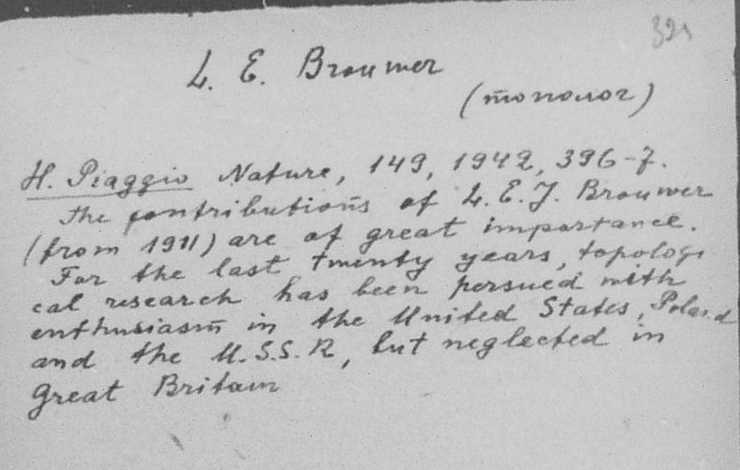 321
L. E. Brouwer
(тополог)
H. Piaggio Nature, 149, 1942, 396-7.
The contributions of L. E. J. Brouwer
(from 1911) are of great importance.
For the last twenty years, topologi
cal research has been persued with
enthusiasm in the United States, Poland
and the U.S.S.R, but neglected in
Great Britain